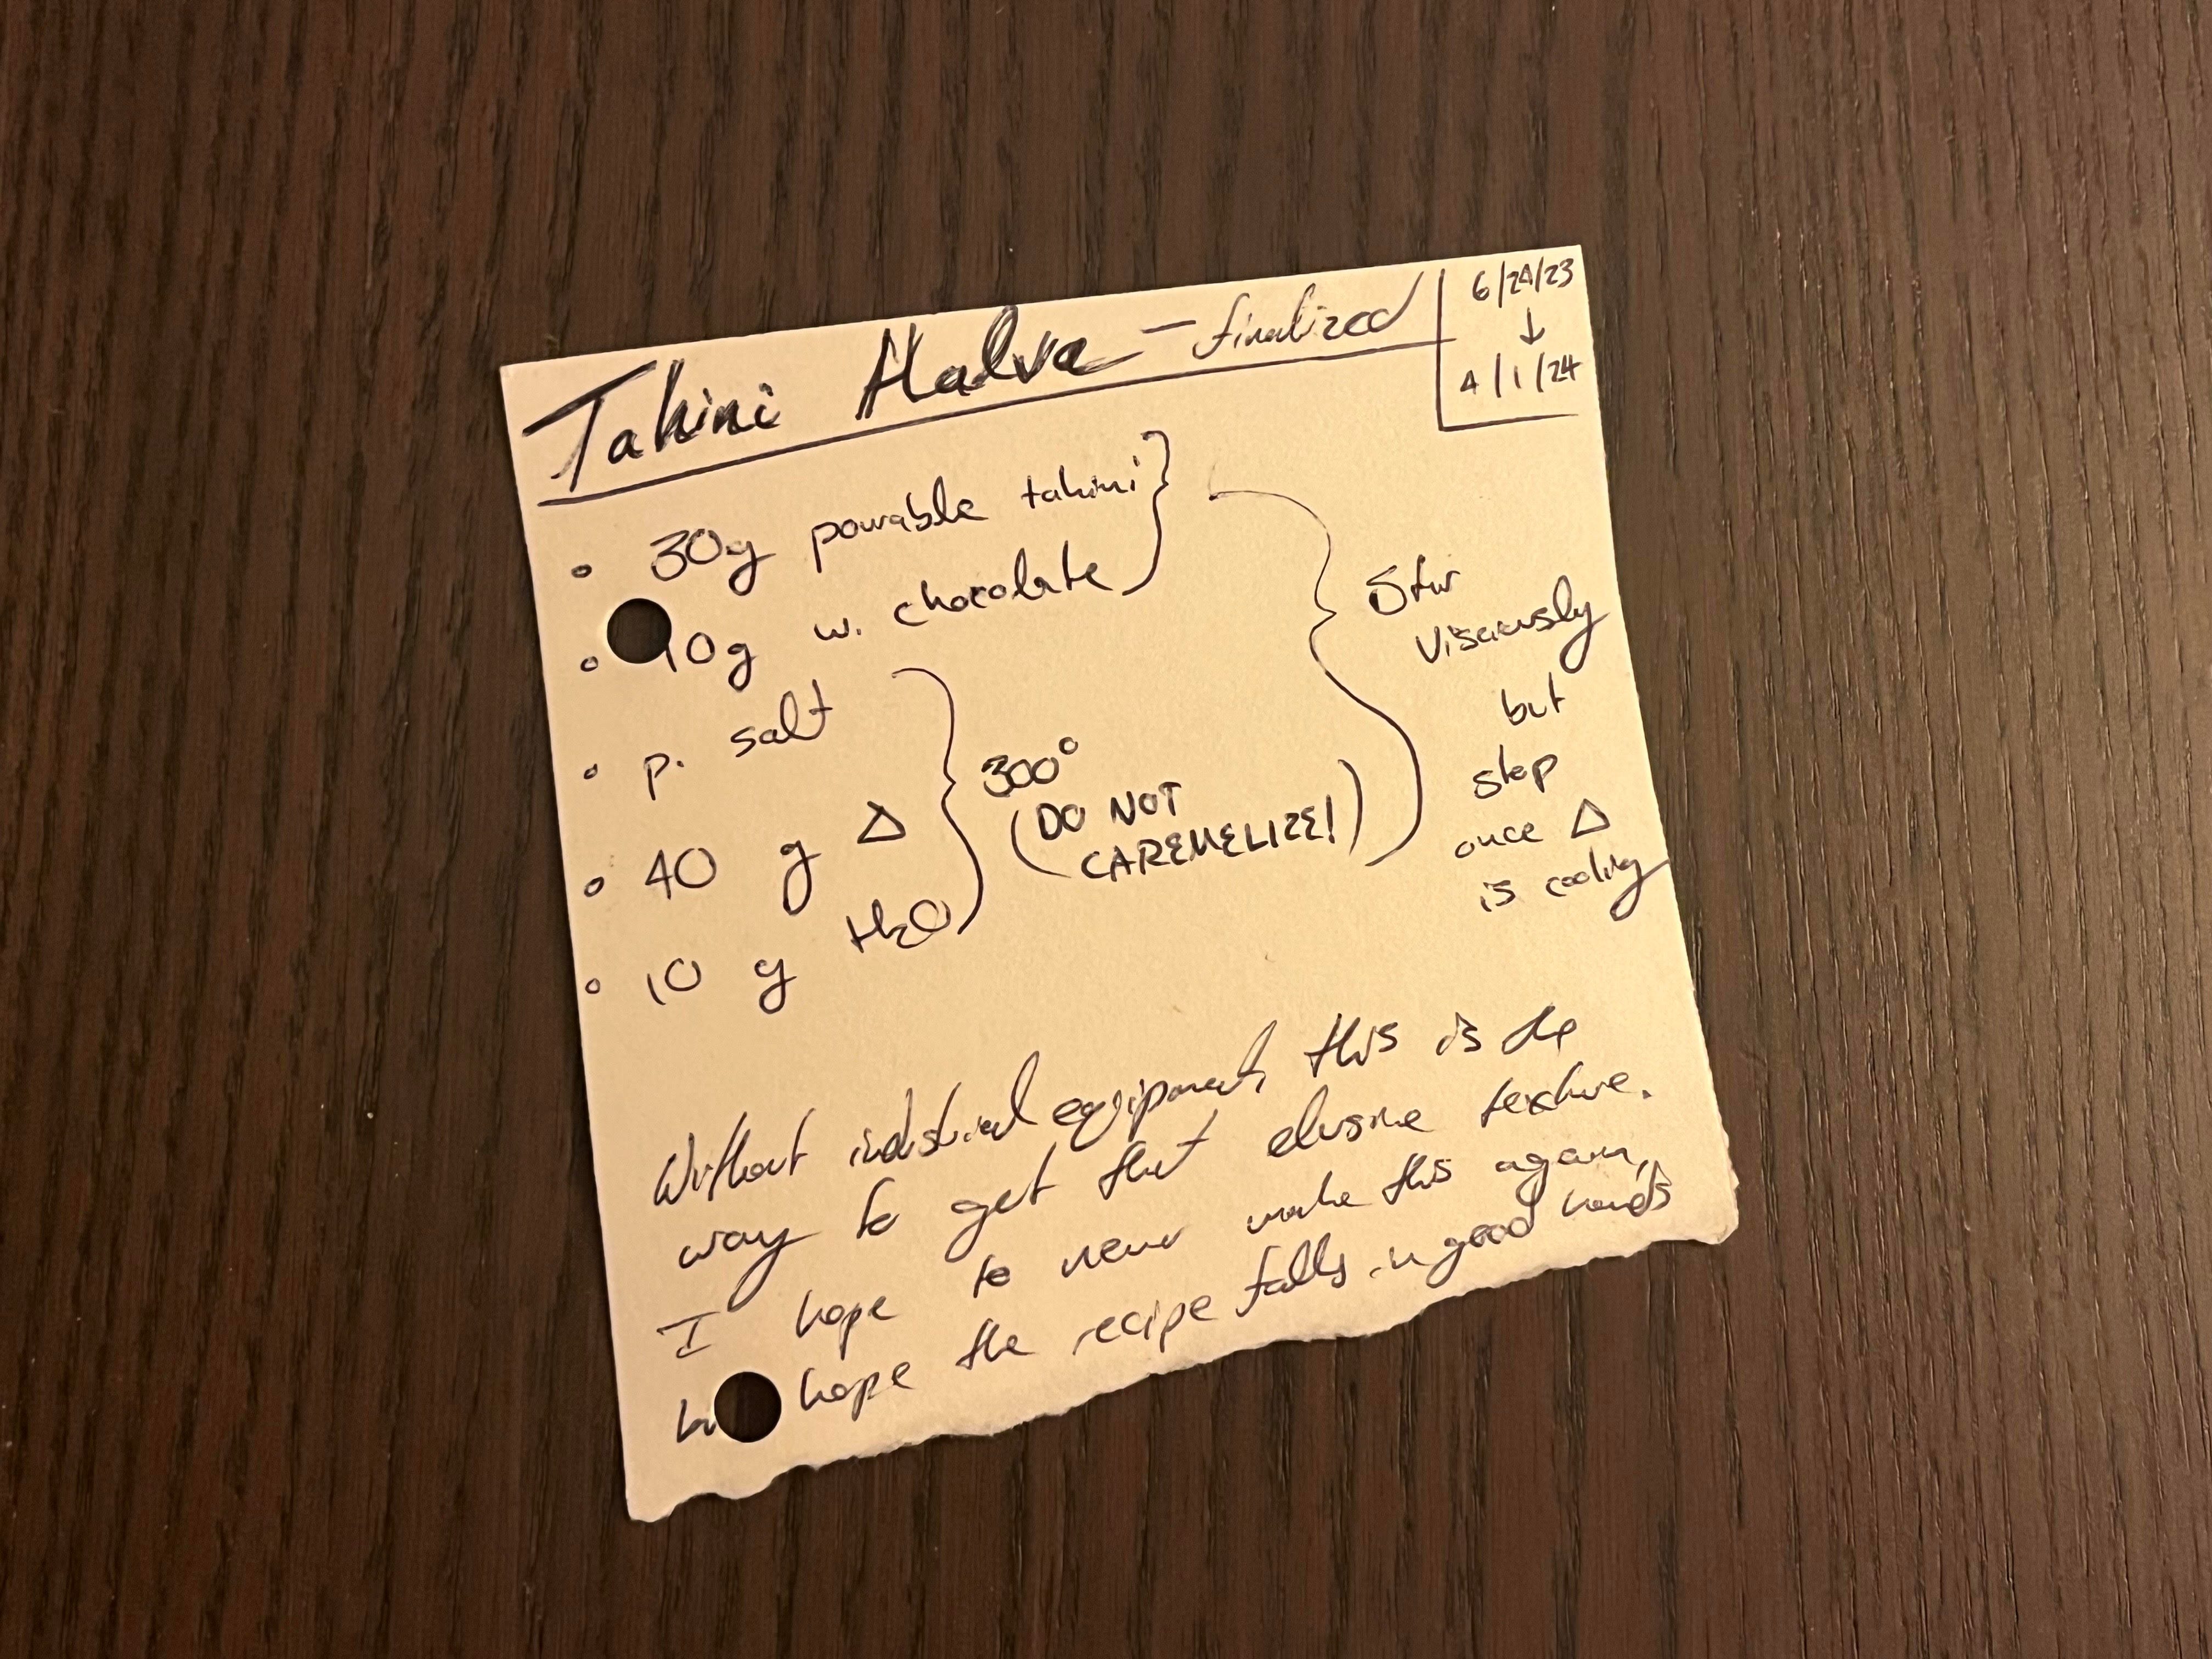 Tahini Halva - finalized
6/24/23
↓
4/1/24
◦ 30g pourable tahini
◦ 10g w. chocolate
◦ p. salt
◦ 40 g Δ
◦ 10 g H2O
300°
(DO NOT
CAREMELIZE!)
Stir
Visciously
but
stop
once Δ
is cooling
Without industrial equipment, this is the
way to get that elusive texture.
I hope to never make this again,
hope the recipe falls in good hands